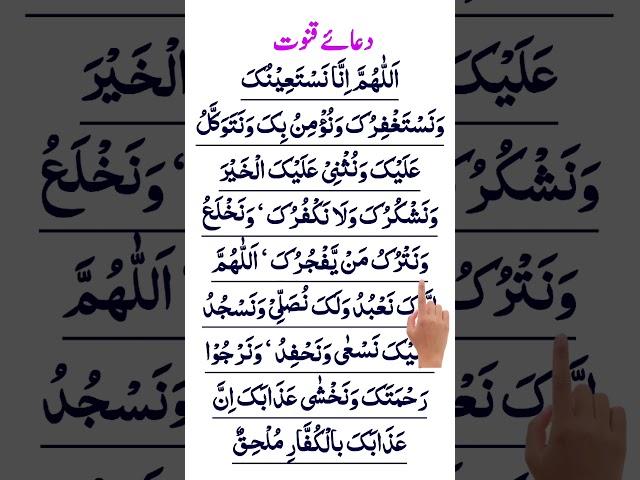 دعائے قنوت
اَللّٰهُمَّ اِنَّا نَسْتَعِیْنُکَ
وَنَسْتَغْفِرُکَ وَنُؤْمِنُ بِکَ وَنَتَوَکَّلُ
عَلَیْکَ وَنُثْنِیْ عَلَیْکَ الْخَیْرَ
وَنَشْکُرُکَ وَلَا نَکْفُرُکَ ، وَنَخْلَعُ
وَنَتْرُکُ مَنْ یَّفْجُرُکَ ، اَللّٰهُمَّ
نَعْبُدُ وَلَکَ نُصَلِّیْ وَنَسْجُدُ
نَسْعٰی وَنَحْفِدُ ، وَنَرْجُوْا
رَحْمَتَکَ وَنَخْشٰی عَذَابَکَ اِنَّ
عَذَابَکَ بِالْکُفَّارِ مُلْحِقٌ